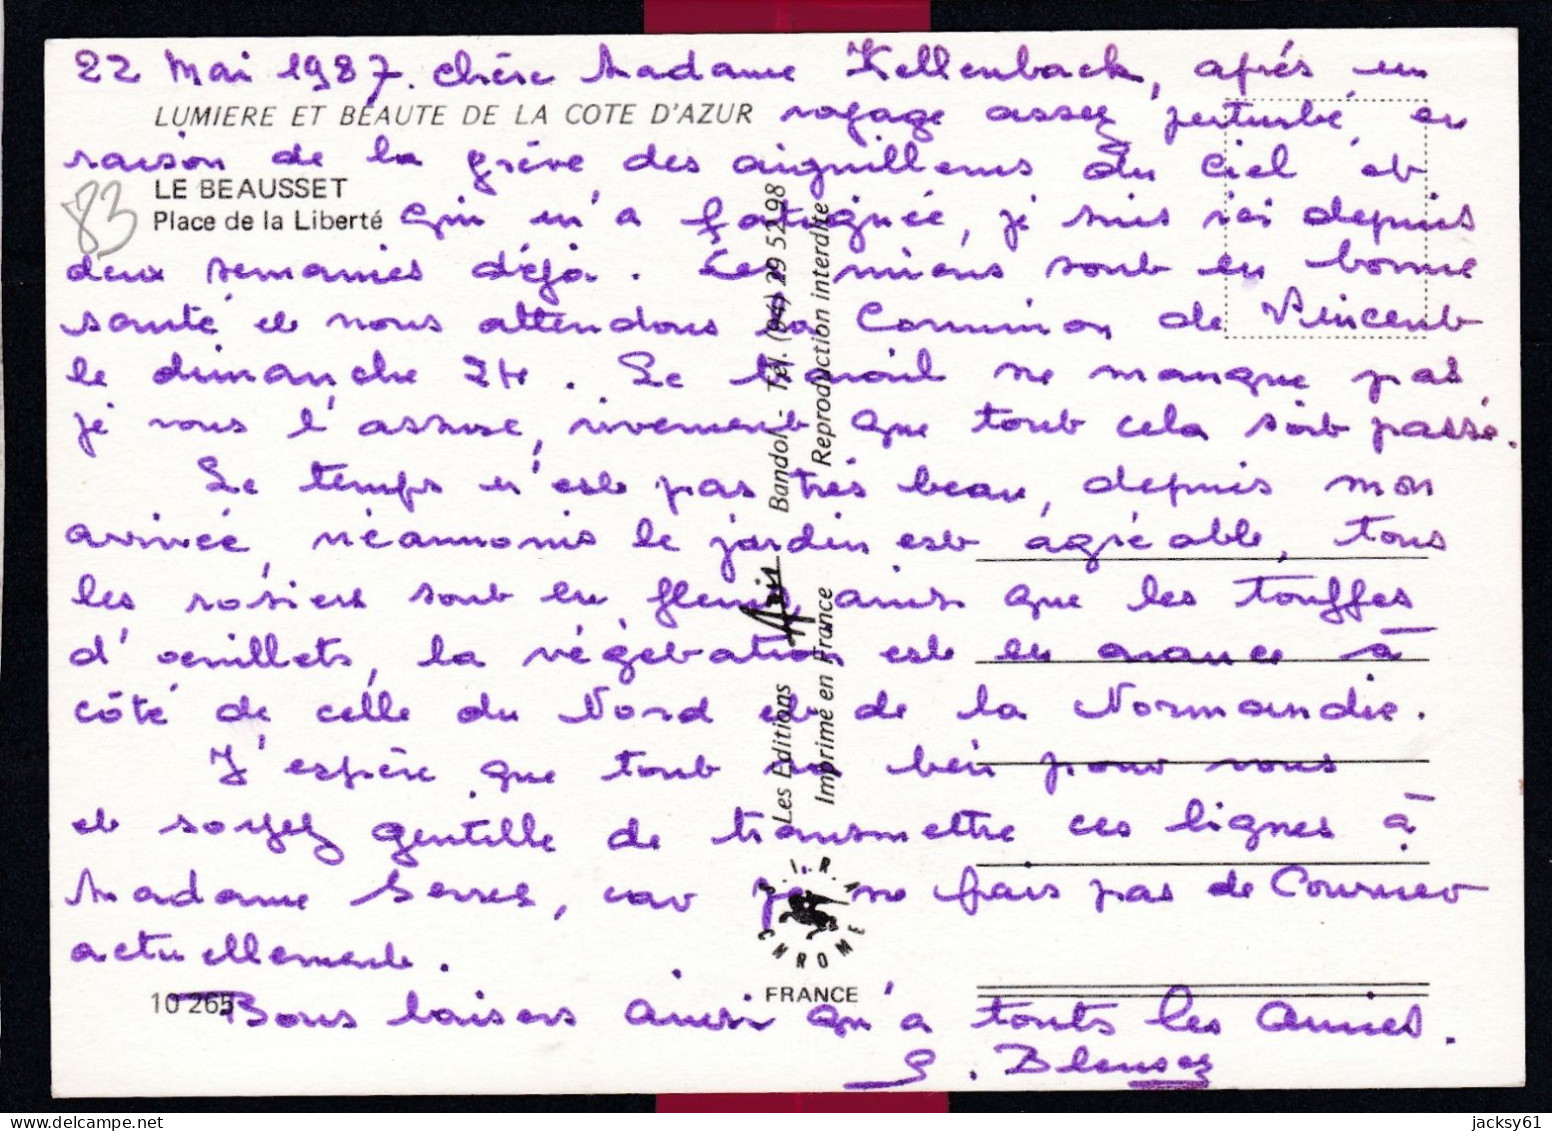 22 Mai 1987. chère Madame Kellenback, après un
LUMIERE ET BEAUTE DE LA COTE D'AZUR
voyage assez perturbé, en
raison de la grève des aiguilleurs du ciel et
LE BEAUSSET
83
Place de la Liberté
qui m'a fatiguée, je suis ici depuis
deux semaines déjà. Les miens sont en bonne
santé et nous attendons la Communion de Vincent
le dimanche 24. Le travail ne manque pas
je vous l'assure, vivement que tout cela soit passé.
Le temps n'est pas très beau, depuis mon
arrivée, néanmoins le jardin est agréable, tous
les rosiers sont en fleurs, ainsi que les touffes
d'oeuillets, la végétation est en avance à
côté de celle du Nord et de la Normandie.
J'espère que tout va bien pour vous
et soyez gentille de transmettre ces lignes à
Madame Serres, car je ne fais pas de Courrier
actuellement.
10 265
Bons baisers ainsi qu'à touts les Amies.
Les Editions Aris Bandol - Tél. (94) 29 52 98
Imprimé en France Reproduction interdite
S.I.R.A.
CHROME
FRANCE
jacksy61